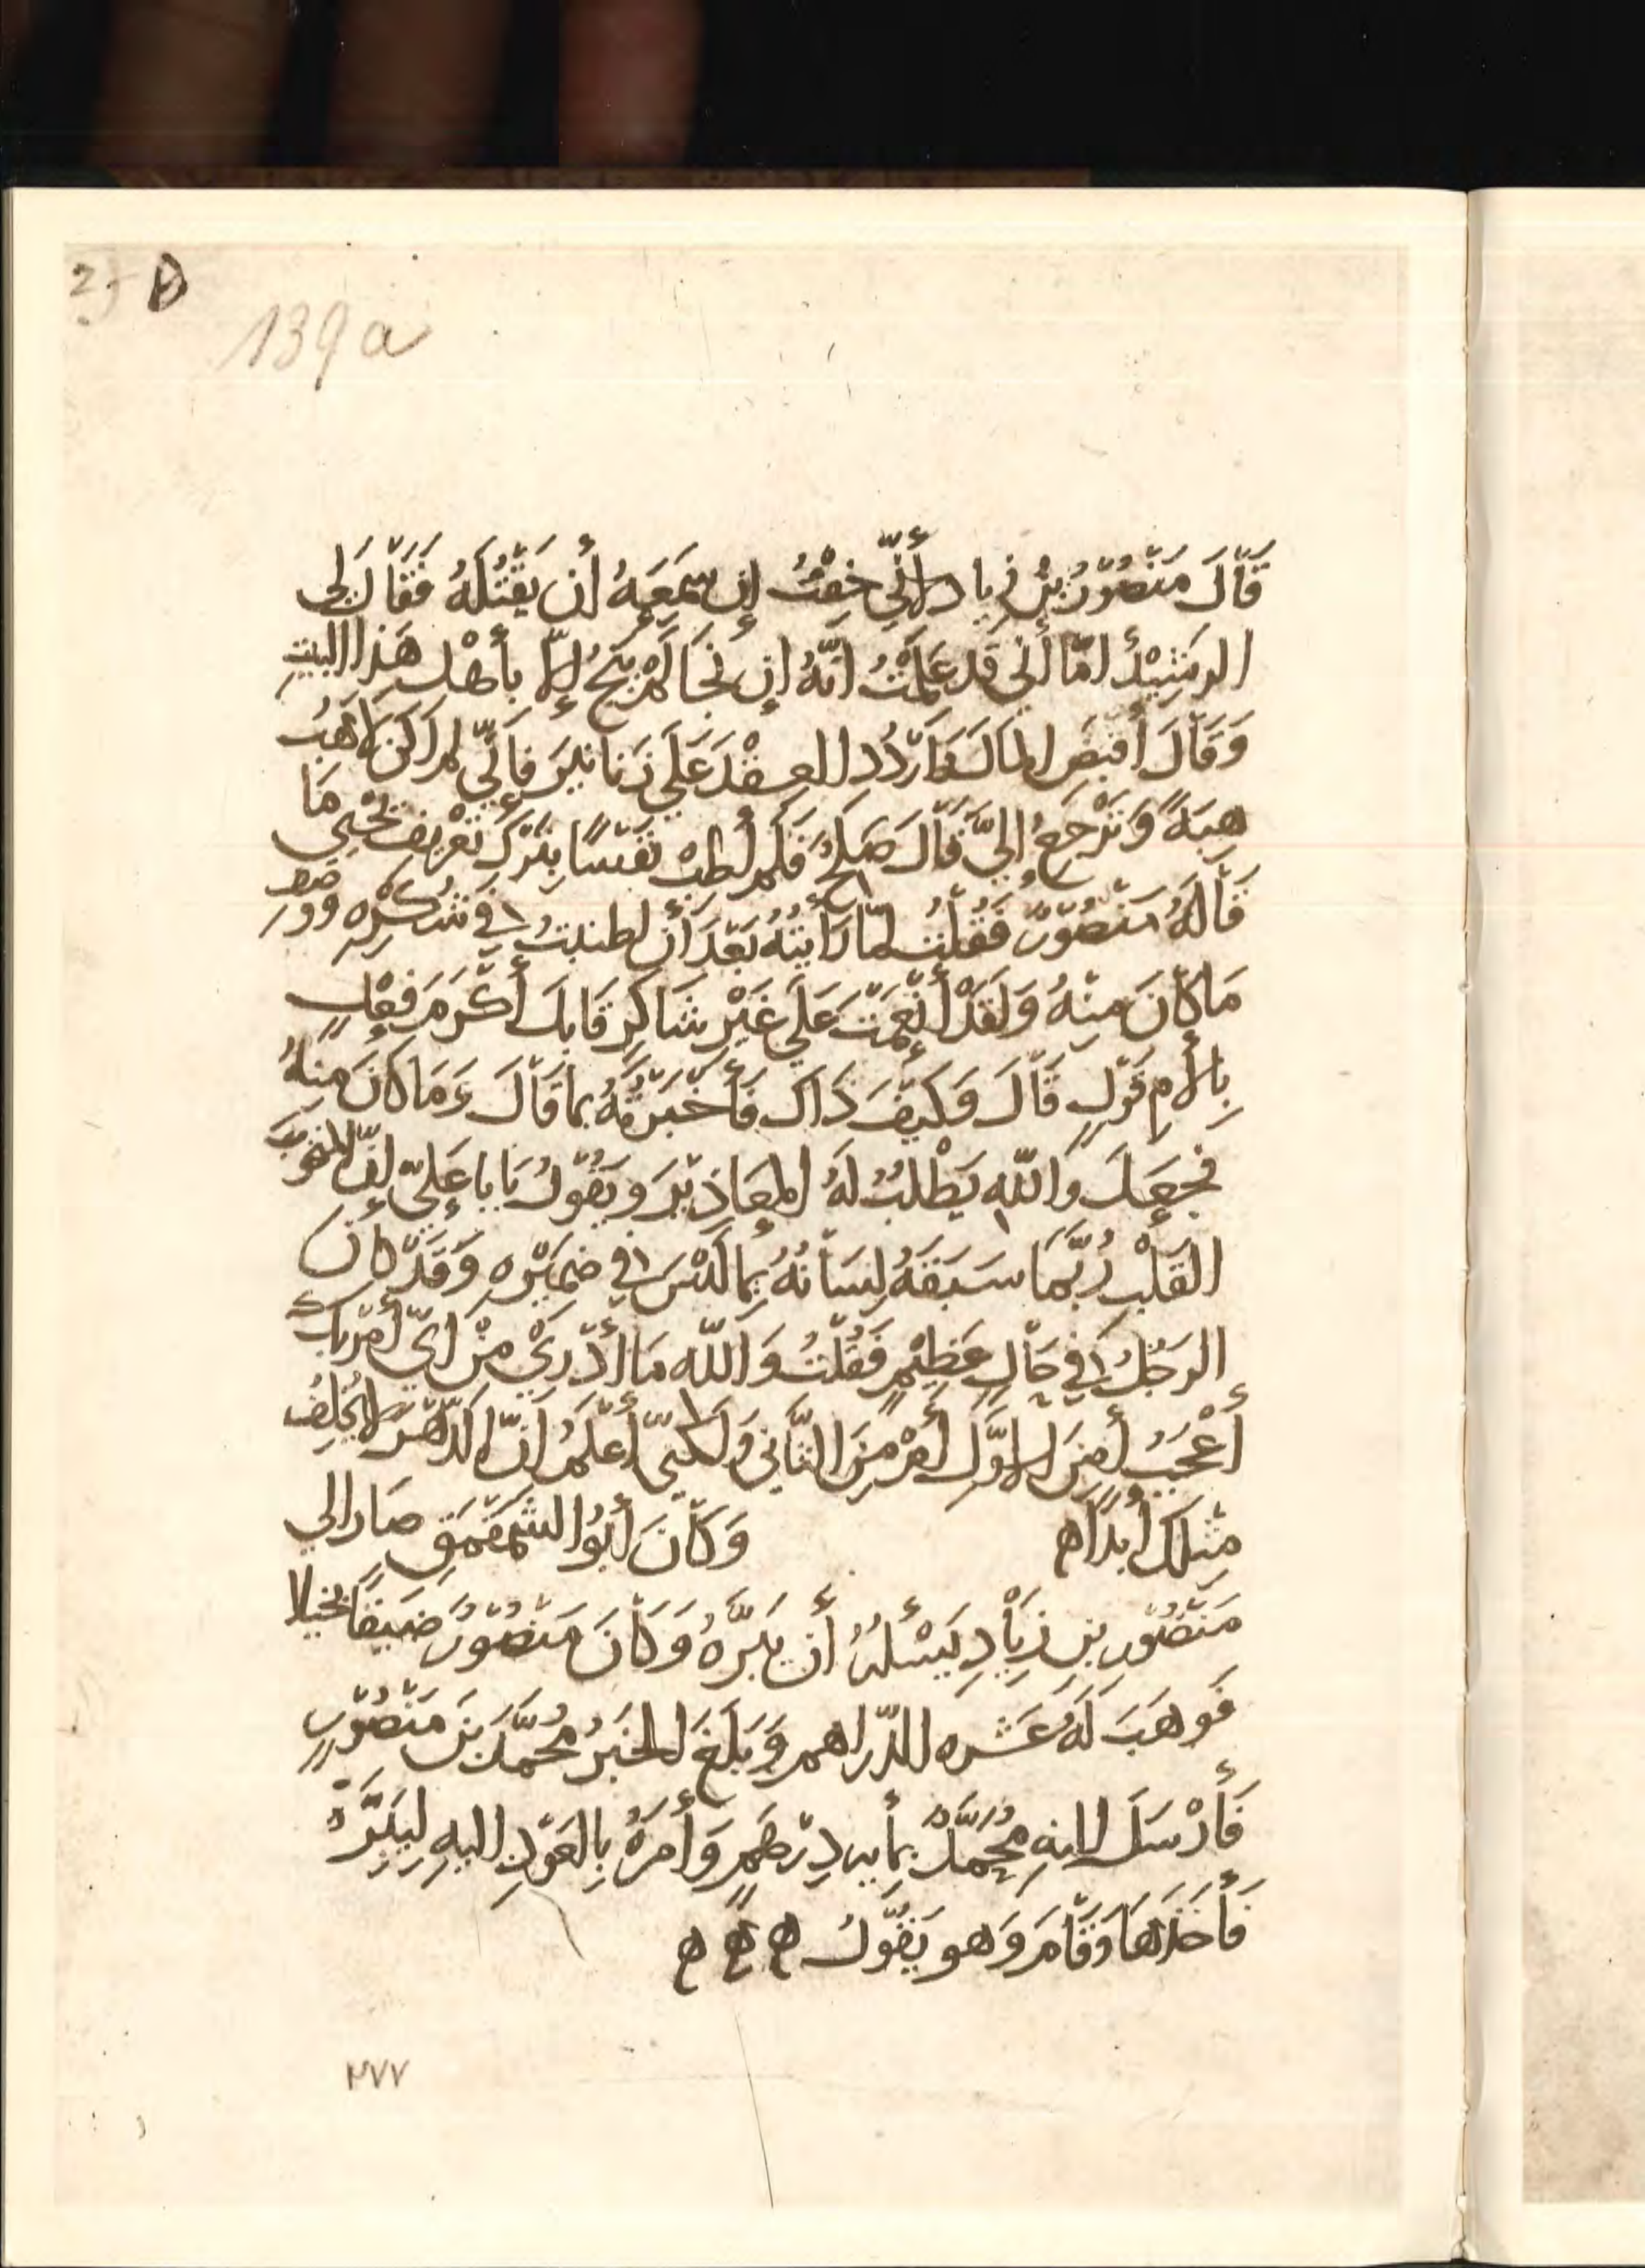 139 a
قَالَ مَنْصُوْرُ بْنُ زِيادٍ لأَنِّي خِفْتُ إِن سَمِعَهُ أن يَقْتُلَهُ فَقَالَ لِي
الرشِيْدُ امّا أَني قَد عَلِمْتُ انّهُ إن نَجَا لَمْ يَنْجُ إلّا بأهْلِ هَذا البيتِ
وَقَالَ أقبَضِ المالَ وَارْدُدِ العِقْدَ عَلَى دَنانيْرَ فإنِّي لم اكن لاهَبُ
هِبَةً وَتَرْجعُ إليَّ قَالَ صَالحٌ فَلَم أطِبْ نفْسًا بِتَرْكِ تعْرِيفِ يَحْيى مَا
قَالَهُ مَنْصُوْرٌ فَقُلْتُ لمّا رَأيتُهُ بَعْدَ أن اطنبتُ في شُكْرِهِ ووصفِ
مَا كَانَ مِنْهُ وَلَقَدْ أنْعَمْتَ عَلَى غَيْرِ شَاكِرٍ قَابَلَ أكْرَمَ فِعْلٍ
بِألأمِ قَوْلٍ قَالَ وَكَيْفَ ذَاكَ فَأخْبَرْتُهُ بما قَالَ وَمَا كَانَ مِنهُ
فجَعَلَ وَاللّهِ يَطْلُبُ لَهُ المعَاذِيْرَ وَيَقُوْلُ يَا با عَليّ إنّ المنخوبَ
القَلْبِ رُبَّمَا سَبَقَهُ لِسَانُهُ بِمَا لَيْسَ في ضَمِيْرِهِ وَقَدْ كَانَ
الرَجُلُ في حَالٍ عَظِيْمٍ فَقُلْتُ وَاللّهِ مَا أدْرِيْ مِنْ ايّ أمْرَيْكَ
أعْجَبُ أمِنَ الاوَّلِ أمْ مِنَ الثَّانِي وَلَكنّي أعلَمُ انَّ الدّهْرَ لا يُخلِفُ
مِثلكَ أبدًا ه وَكَانَ أبُوْ الشمَقْمَقِ صَارَ الى
مَنْصُوْرِ بنِ زِيَادٍ يَسْئَلُهُ أن يَبَرَّهُ وَكَانَ مَنْصُوْرُ ضَيِّقًا بخيلا
فَوهَبَ لَهُ عَشره الدّراهم وَبَلَغَ الخبَرُ مُحَمَّدَ بنَ مَنْصُوْرٍ
فَأرْسَلَ اليهِ مُحَمَّدٌ بمايه دِرْهَمٍ وَأمَرَهُ بِالعَوْدِ اليهِ لِيَبَرَّهُ
فَأخَذَهَا وَقَامَ وَهو يَقُوْلُ ه ه ه
٢٧٧